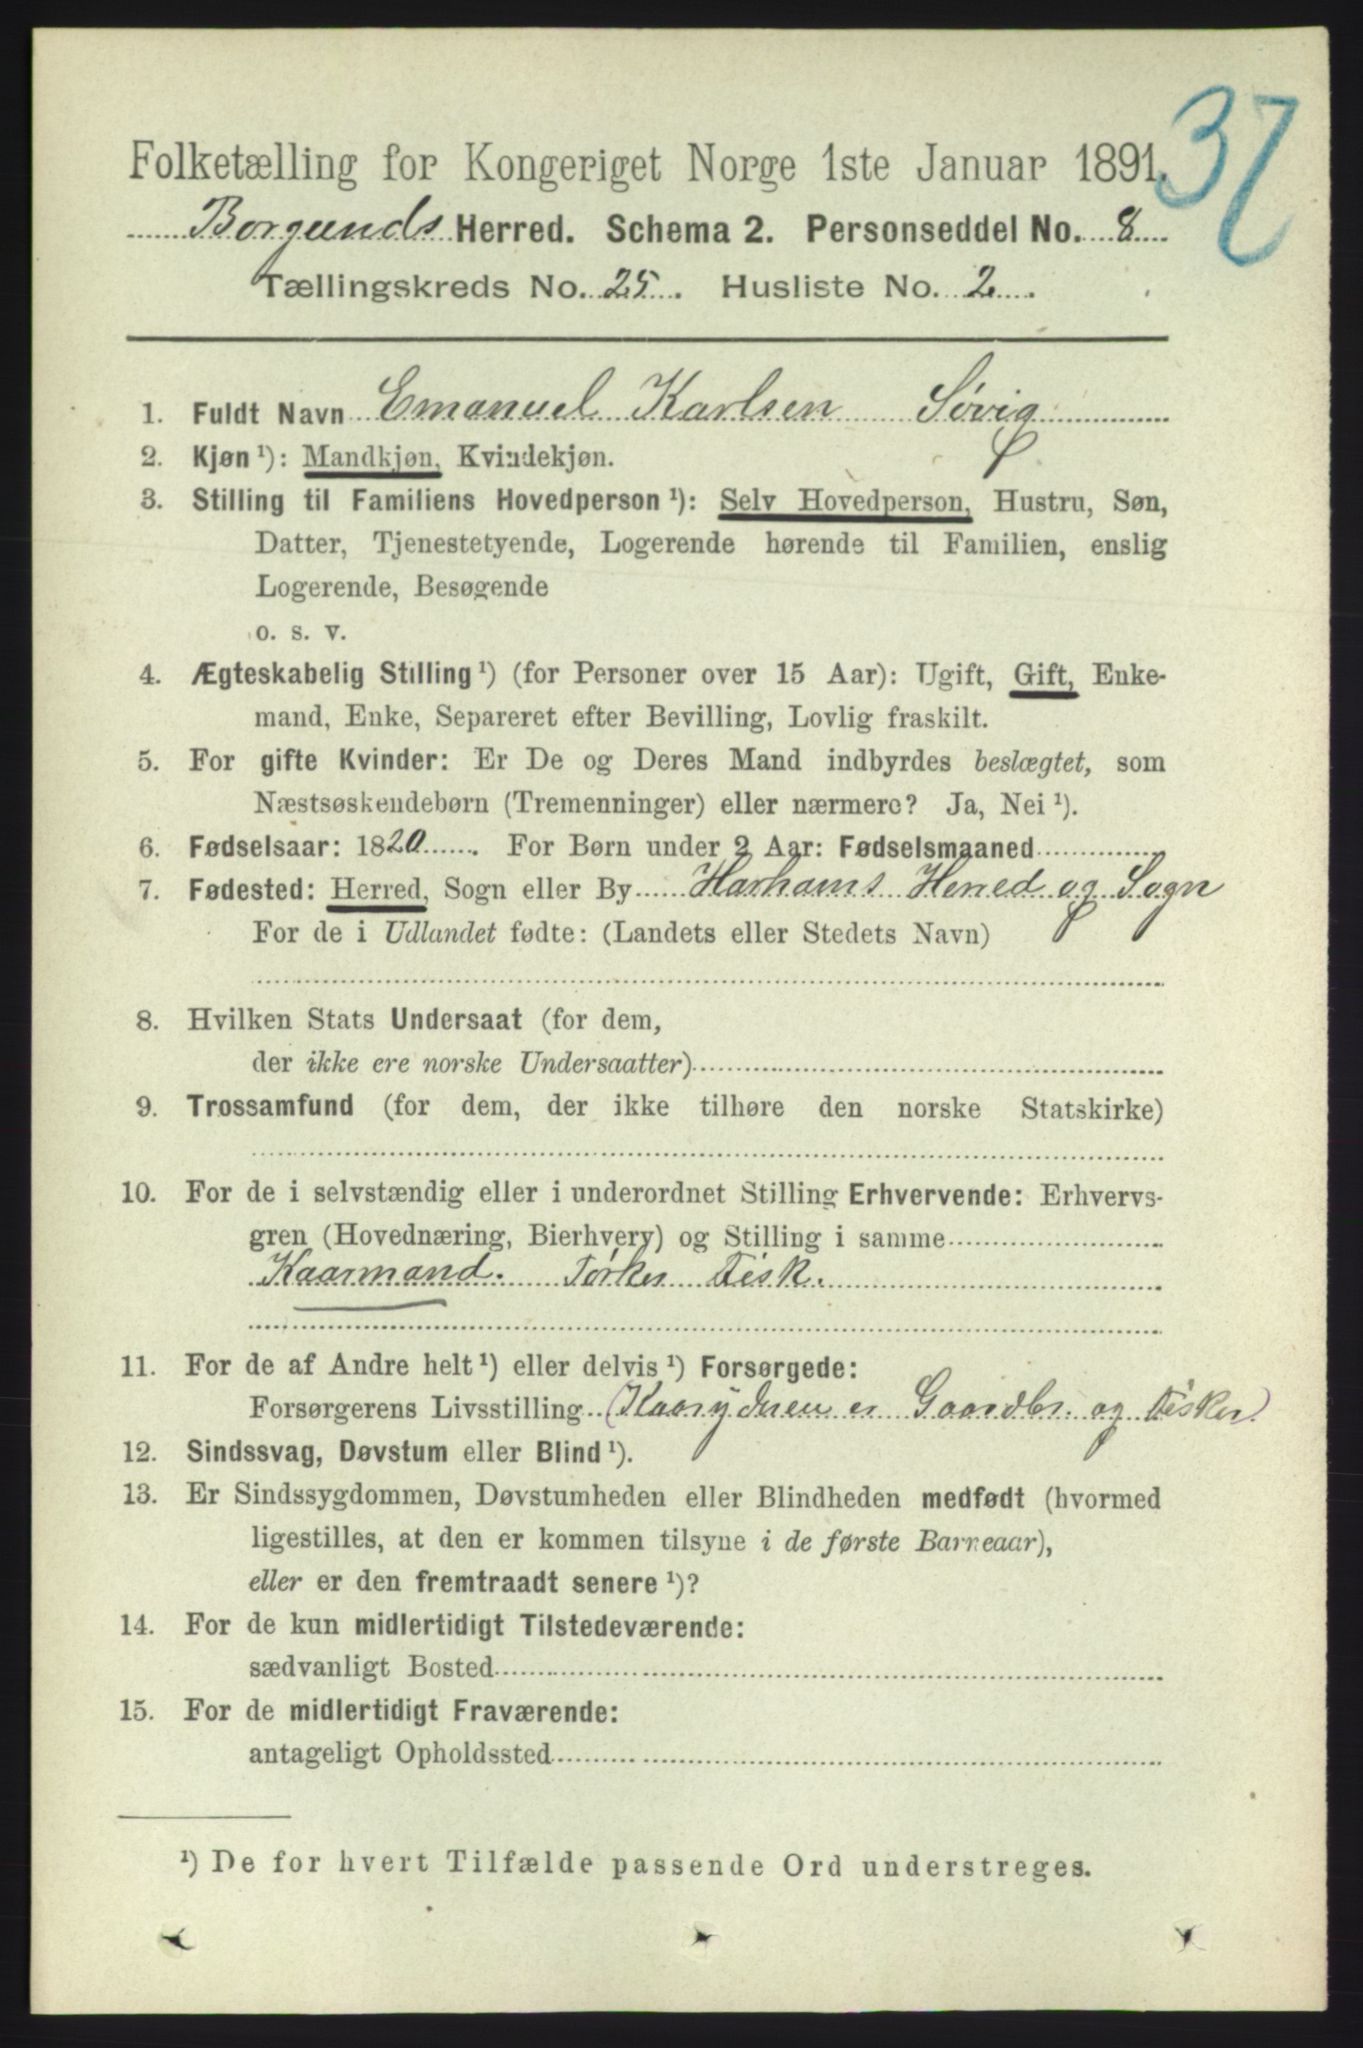 37
Folketælling for Kongeriget Norge 1ste Januar 1891.
Borgunds Herred. Schema 2. Personseddel No. 8
Tællingskreds No. 25. Husliste No. 2.
1. Fuldt Navn Emanuel Karlsen Søvig
2. Kjøn ¹): Mandkjøn, Kvindekjøn.
3. Stilling til Familiens Hovedperson ¹): Selv Hovedperson, Hustru, Søn,
Datter, Tjenestetyende, Logerende hørende til Familien, enslig
Logerende, Besøgende
o. s. v.
4. Ægteskabelig Stilling ¹) (for Personer over 15 Aar): Ugift, Gift, Enke-
mand, Enke, Separeret efter Bevilling, Lovlig fraskilt.
5. For gifte Kvinder: Er De og Deres Mand indbyrdes beslægtet, som
Næstsøskendebørn (Tremenninger) eller nærmere? Ja, Nei ¹).
6. Fødselsaar: 1820. For Børn under 2 Aar: Fødselsmaaned
7. Fødested: Herred, Sogn eller By Harhams Herred og Sogn
For de i Udlandet fødte: (Landets eller Stedets Navn)
8. Hvilken Stats Undersaat (for dem,
der ikke ere norske Undersaatter)
9. Trossamfund (for dem, der ikke tilhøre den norske Statskirke)
10. For de i selvstændig eller i underordnet Stilling Erhvervende: Erhvervs-
gren (Hovednæring, Bierhverv) og Stilling i samme
Kaarmand. Tørker Fisk.
11. For de af Andre helt ¹) eller delvis ¹) Forsørgede:
Forsørgerens Livsstilling (Kaaryderen er Gaardbr. og Fisker)
12. Sindssvag, Døvstum eller Blind ¹).
13. Er Sindssygdommen, Døvstumheden eller Blindheden medfødt (hvormed
ligestilles, at den er kommen tilsyne i de første Barneaar),
eller er den fremtraadt senere ¹)?
14. For de kun midlertidigt Tilstedeværende:
sædvanligt Bosted
15. For de midlertidigt Fraværende:
antageligt Opholdssted
¹) De for hvert Tilfælde passende Ord understreges.